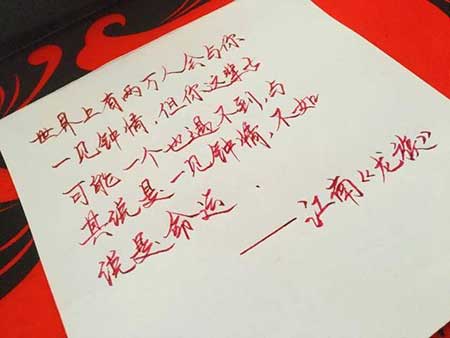 世界上有两万人会与你
一见钟情,但你这辈子
可能一个也遇不到,与
其说是一见钟情,不如
说是命运.
——江南《龙族》